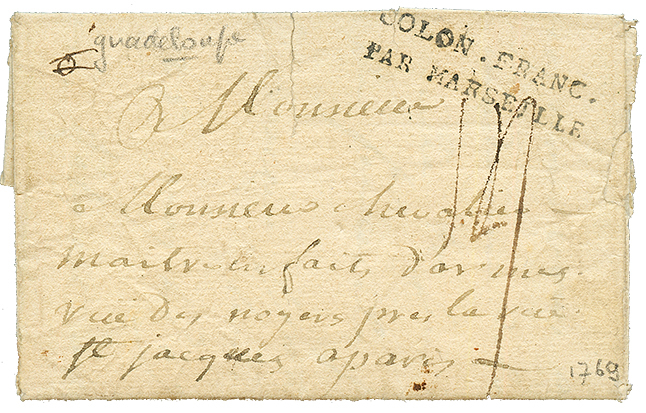 guadeloupe
COLON. FRANC.
PAR MARSEILLE
A Monsieur
a Monsieur chevalier
maitre en faits d'armes
rue des noyers pres la rue
St jacques a paris
1769